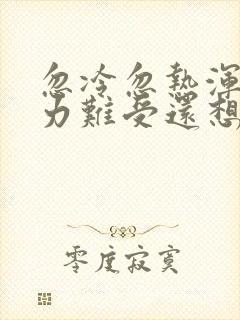 忽冷忽熱渾
力難受還想
零度寂寞